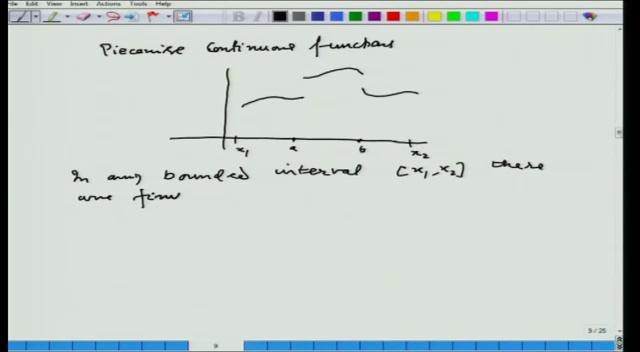 File Edit View Insert Actions Tools Help
Piecewise continuous functions
x1 a b x2
In any bounded interval [x1, x2] there
are fini
9 / 25
9